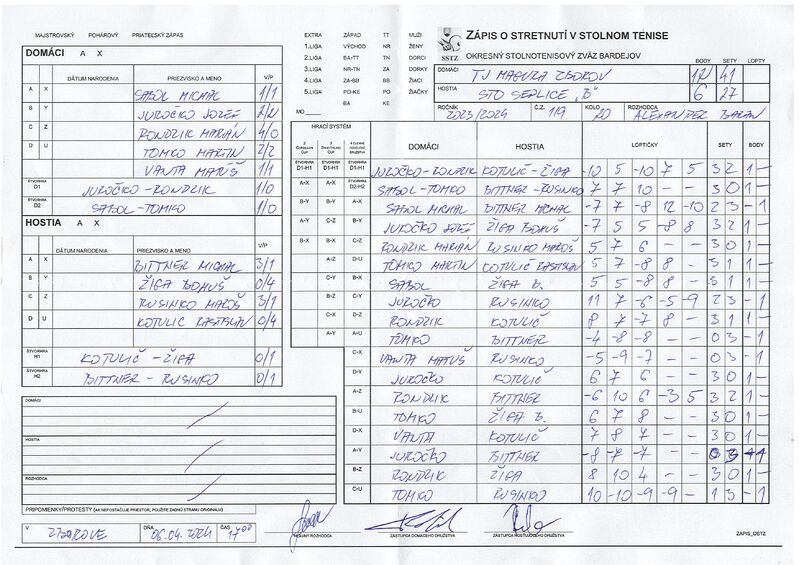 MAJSTROVSKÝ POHÁROVÝ PRIATEĽSKÝ ZÁPAS
EXTRA ZÁPAD TT MUŽI
1.LIGA VÝCHOD NR ŽENY
2.LIGA BA-TT TN DORCI
3.LIGA NR-TN ZA DORKY
4.LIGA ZA-BB BB ŽIACI
5.LIGA PO-KE PO ŽIAČKY
BA KE
MO
SSTZ
ZÁPIS O STRETNUTÍ V STOLNOM TENISE
OKRESNÝ STOLNOTENISOVÝ ZVÄZ BARDEJOV
BODY SETY LOPTY
DOMÁCI TJ MAGURA ZBOROV 12 41
HOSTIA STO GERLICE "B" 6 27
ROČNÍK 2023/2024 Č.Z. 119 KOLO 20 ROZHODCA ALEXANDER BARAN
DOMÁCI A X
DÁTUM NARODENIA PRIEZVISKO A MENO V/P
A X SABOL MICHAL 1/1
B Y JUROČKO JOZEF 2/2
C Z RONDZIK MARIAN 4/0
D U TOMKO MARTIN 2/2
VANTA MATÚŠ 1/1
ŠTVORHRA D1 JUROČKO - RONDZIK 1/0
ŠTVORHRA D2 SABOL - TOMKO 1/0
HOSTIA A X
DÁTUM NARODENIA PRIEZVISKO A MENO V/P
A X BITTNER MICHAL 3/1
B Y ŽIGA BOHUŠ 0/4
C Z RUSINKO MAROŠ 3/1
D U KOTULIČ RASTISLAV 0/4
ŠTVORHRA H1 KOTULIČ - ŽIGA 0/1
ŠTVORHRA H2 BITTNER - RUSINKO 0/1
DOMÁCI
HOSTIA
ROZHODCA
PRIPOMIENKY/PROTESTY (AK NEPOSTAČUJE PRIESTOR, POUŽITE ZADNÚ STRANU ORIGINÁLU)
V ZBOROVE DŇA 06.04.2024 ČAS 17:00
HRACÍ SYSTÉM
DOMÁCI HOSTIA LOPTIČKY SETY BODY
D1-H1 D1-H1 D1-H1 JUROČKO-RONDZIK KOTULIČ-ŽIGA -10 5 -10 7 5 3 2 1 -
A-X A-X D2-H2 SABOL-TOMKO BITTNER-RUSINKO 7 7 10 - - 3 0 1 -
B-Y B-Y A-X SABOL MICHAL BITTNER MICHAL -7 7 -8 12 -10 2 3 - 1
A-Y C-Z B-Y JUROČKO JOZEF ŽIGA BOHUŠ -7 5 5 -8 8 3 2 1 -
B-X B-X C-Z RONDZIK MARIAN RUSINKO MAROŠ 5 7 6 - - 3 0 1 -
A-Z D-U TOMKO MARTIN KOTULIČ RASTISLAV 5 7 -8 8 - 3 1 1 -
C-Y B-X SABOL ŽIGA B. 5 5 -8 8 - 3 1 1 -
B-Z C-Y JUROČKO RUSINKO 11 7 -6 -5 -9 2 3 - 1
C-X D-Z RONDZIK KOTULIČ 8 7 7 -8 8 - 3 1 1 -
A-Y A-U TOMKO BITTNER -4 -8 -8 - - 0 3 - 1
C-X VANTA MATÚŠ RUSINKO -5 -9 -7 - - 0 3 - 1
D-Y JUROČKO KOTULIČ 6 7 6 - - 3 0 1 -
A-Z RONDZIK BITTNER -6 10 6 -3 5 3 2 1 -
B-U TOMKO ŽIGA B. 6 7 8 - - 3 0 1 -
D-X VANTA KOTULIČ 7 8 7 - - 3 0 1 -
A-Y JUROČKO BITTNER -8 -7 -7 - - 0 3 - 1
B-Z RONDZIK ŽIGA 8 10 4 - - 3 0 1 -
C-U TOMKO RUSINKO 10 -10 -9 -9 - 1 3 - 1
HLAVNÝ ROZHODCA ZÁSTUPCA DOMÁCEHO DRUŽSTVA ZÁSTUPCA HOSŤUJÚCEHO DRUŽSTVA ZAPIS_OSTZ